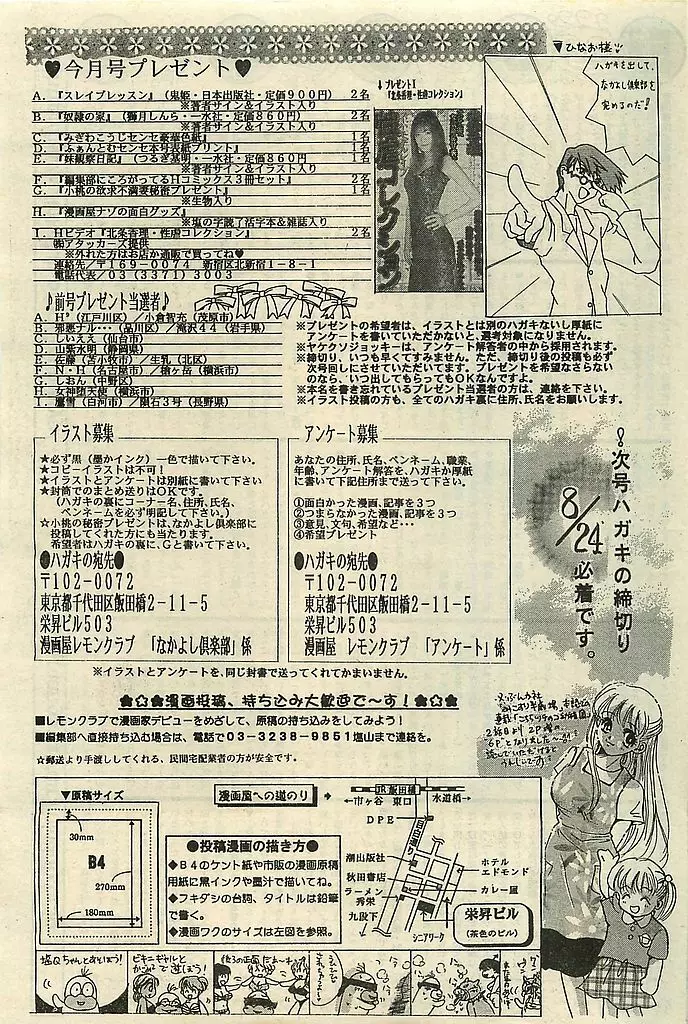 ♥今月号プレゼント♥
A.『スレイブレッスン』（鬼姫・日本出版社・定価９００円） 2名
※著者サイン＆イラスト入り
B.『奴隷の家』（獅月しんら・一水社・定価860円） 2名
※著者サイン＆イラスト入り
C.『みぎわこうじセンセ豪華色紙』 1名
D.『ふぁんとむセンセ本号表紙プリント』 1名
E.『妹観察日記』（つるぎ基明・一水社・定価860円 1名
※著者サイン＆イラスト入り
F.『編集部にころがってるHコミックス3冊セット』 2名
G.『小桃の欲求不満妻秘密プレゼント』 1名
※生物入り
H.『漫画屋ナゾの面白グッズ』
※塩の字読了活字本＆雑誌入り
I.Hビデオ『北条香理・性虐コレクション』 2名
㈱アタッカーズ提供
※外れた方はお店か通販で買ってね♥
連絡先／〒169-0074 新宿区北新宿1-8-1
電話代表／03（3371）3003
↓プレゼントI
『北条香理・性虐コレクション』
▼ひなお様
ハガキを出して、
なかよし倶楽部を
覚めるのだ!
♪前号プレゼント当選者♪
A.H²（江戸川区）／小倉智充（茂原市）
B.邪悪ナル…（品川区）／滝沢44（岩手県）
C.しいええ（仙台市）
D.山紫水明（静岡県）
E.佐藤（苫小牧市）／生乳（北区）
F.N・H（名古屋市）／槍ヶ岳（横浜市）
G.しおん（中野区）
H.女神堕天使（横浜市）
I.鷹雪（白河市）／隕石3号（長野県）
※プレゼントの希望者は、イラストとは別のハガキないし厚紙に
アンケートを書いていただかないと、選考対象になりません。
※ヤクソクジョッキーは、アンケート解答者の中から採用されます。
※締切り、いつも早くてすみません。ただ、締切り後の投稿も必ず
次号回しにさせていただいてます。プレゼントを希望なさらない
のなら、いつ出してもらってもOKなんですよ。
※本名を書き忘れているプレゼント当選者の方は、連絡を下さい。
※イラスト投稿の方も、全てのハガキ裏に住所、氏名をお願いします。
イラスト募集
★必ず黒（墨かインク）一色で描いて下さい。
★コピーイラストは不可！
★イラストとアンケートは別紙に書いて下さい
★封筒でのまとめ送りはOKです。
（ハガキの裏にコーナー名、住所、氏名、
ペンネームを必ず明記して下さい。）
☆小桃の秘密プレゼントは、なかよし倶楽部に
投稿してくれた方にも当たります。
希望者はハガキの裏に、Gと書いて下さい。
●ハガキの宛先●
〒102-0072
東京都千代田区飯田橋2-11-5
栄昇ビル503
漫画屋レモンクラブ 「なかよし倶楽部」係
アンケート募集
あなたの住所、氏名、ペンネーム、職業、
年齢、アンケート解答を、ハガキか厚紙
に書いて下記住所まで送って下さい。
①面白かった漫画、記事を3つ
②つまらなかった漫画、記事を3つ
③意見、文句、希望など…
④希望プレゼント
●ハガキの宛先●
〒102-0072
東京都千代田区飯田橋2-11-5
栄昇ビル503
漫画屋 レモンクラブ 「アンケート」係
！次号ハガキの締切り
8/24
必着です。
※イラストとアンケートを、同じ封書で送ってくれてかまいません。
★✿★✿漫画投稿、持ち込み大歓迎で～す！✿★✿★
■レモンクラブで漫画家デビューをめざして、原稿の持ち込みをしてみよう！
■編集部へ直接持ち込む場合は、電話で03-3238-9851塩山まで連絡を。
☆郵送より手渡ししてくれる、民間宅配業者の方が安全です。
▼原稿サイズ
30mm
B4
270mm
180mm
漫画屋への道のり
●投稿漫画の描き方●
◆B4のケント紙や市販の漫画原稿
用紙に黒インクや墨汁で描いてね。
◆フキダシの台詞、タイトルは鉛筆
で書く。
◆漫画ワクのサイズは左図を参照。
JR飯田橋
←市ヶ谷 東口 水道橋→
DPE
目白通り
潮出版社
秋田書店
ラーメン
秀栄
九段下
シニアワーク
ホテル
エドモンド
カレー屋
栄昇ビル
（茶色のビル）
塩Qちゃんとあそぼう!
ビキニギャルと